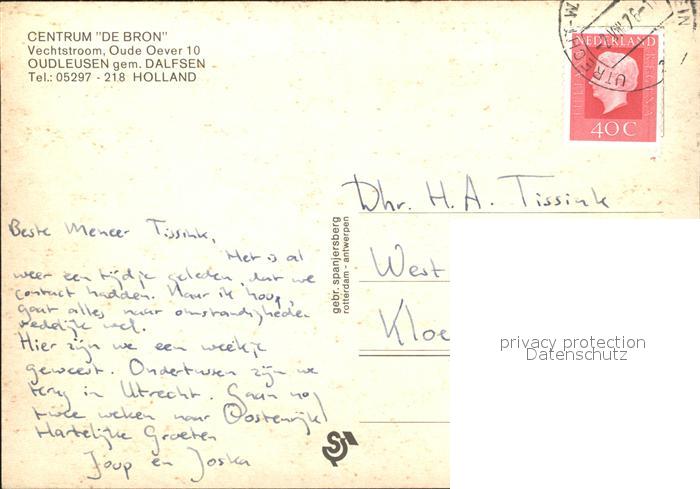 CENTRUM "DE BRON"
Vechtstroom, Oude Oever 10
OUDLEUSEN gem. DALFSEN
Tel.: 05297 - 218 HOLLAND
NEDERLAND
40 C
UTRECHT
Dhr. H. A. Tissink
West
Kloe
gebr. spanjersberg
rotterdam - antwerpen
Beste Meneer Tissink,
Het is al
weer een tijdje geleden dat we
contact hadden. Maar ik hoop,
gaat alles naar omstandigheden
redelijk wel.
Hier zijn we een weekje
geweest. Ondertussen zijn we
terug in Utrecht. Gaan nog
twee weken naar Oostenrijk
Hartelijke Groeten
Joup en Joska
privacy protection
Datenschutz